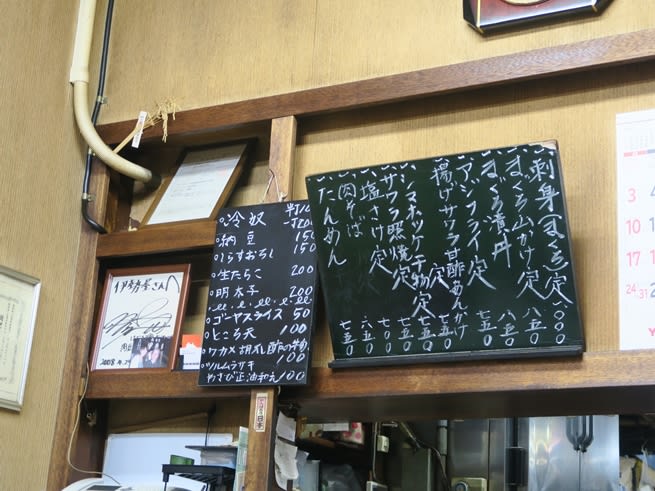 刺身(まぐろ)定 一〇〇〇
まぐろ山かけ定 八五〇
まぐろ漬丼 八五〇
アジフライ定 七五〇
揚げサワラ甘酢あんかけ定 七五〇
シマホッケ干物定 七五〇
サワラ照焼定 七五〇
塩さけ定 七五〇
肉そば 六五〇
たんめん 七五〇
冷奴
納豆 150
しらすおろし 150
生たらこ 200
明太子 200
ゴーヤスライス 50
ところ天 100
ワカメ胡瓜酢の物 100
ツルムラサキ
わさび正油和え 100
伊勢屋さんへ
2008.
3
10
17
24/31